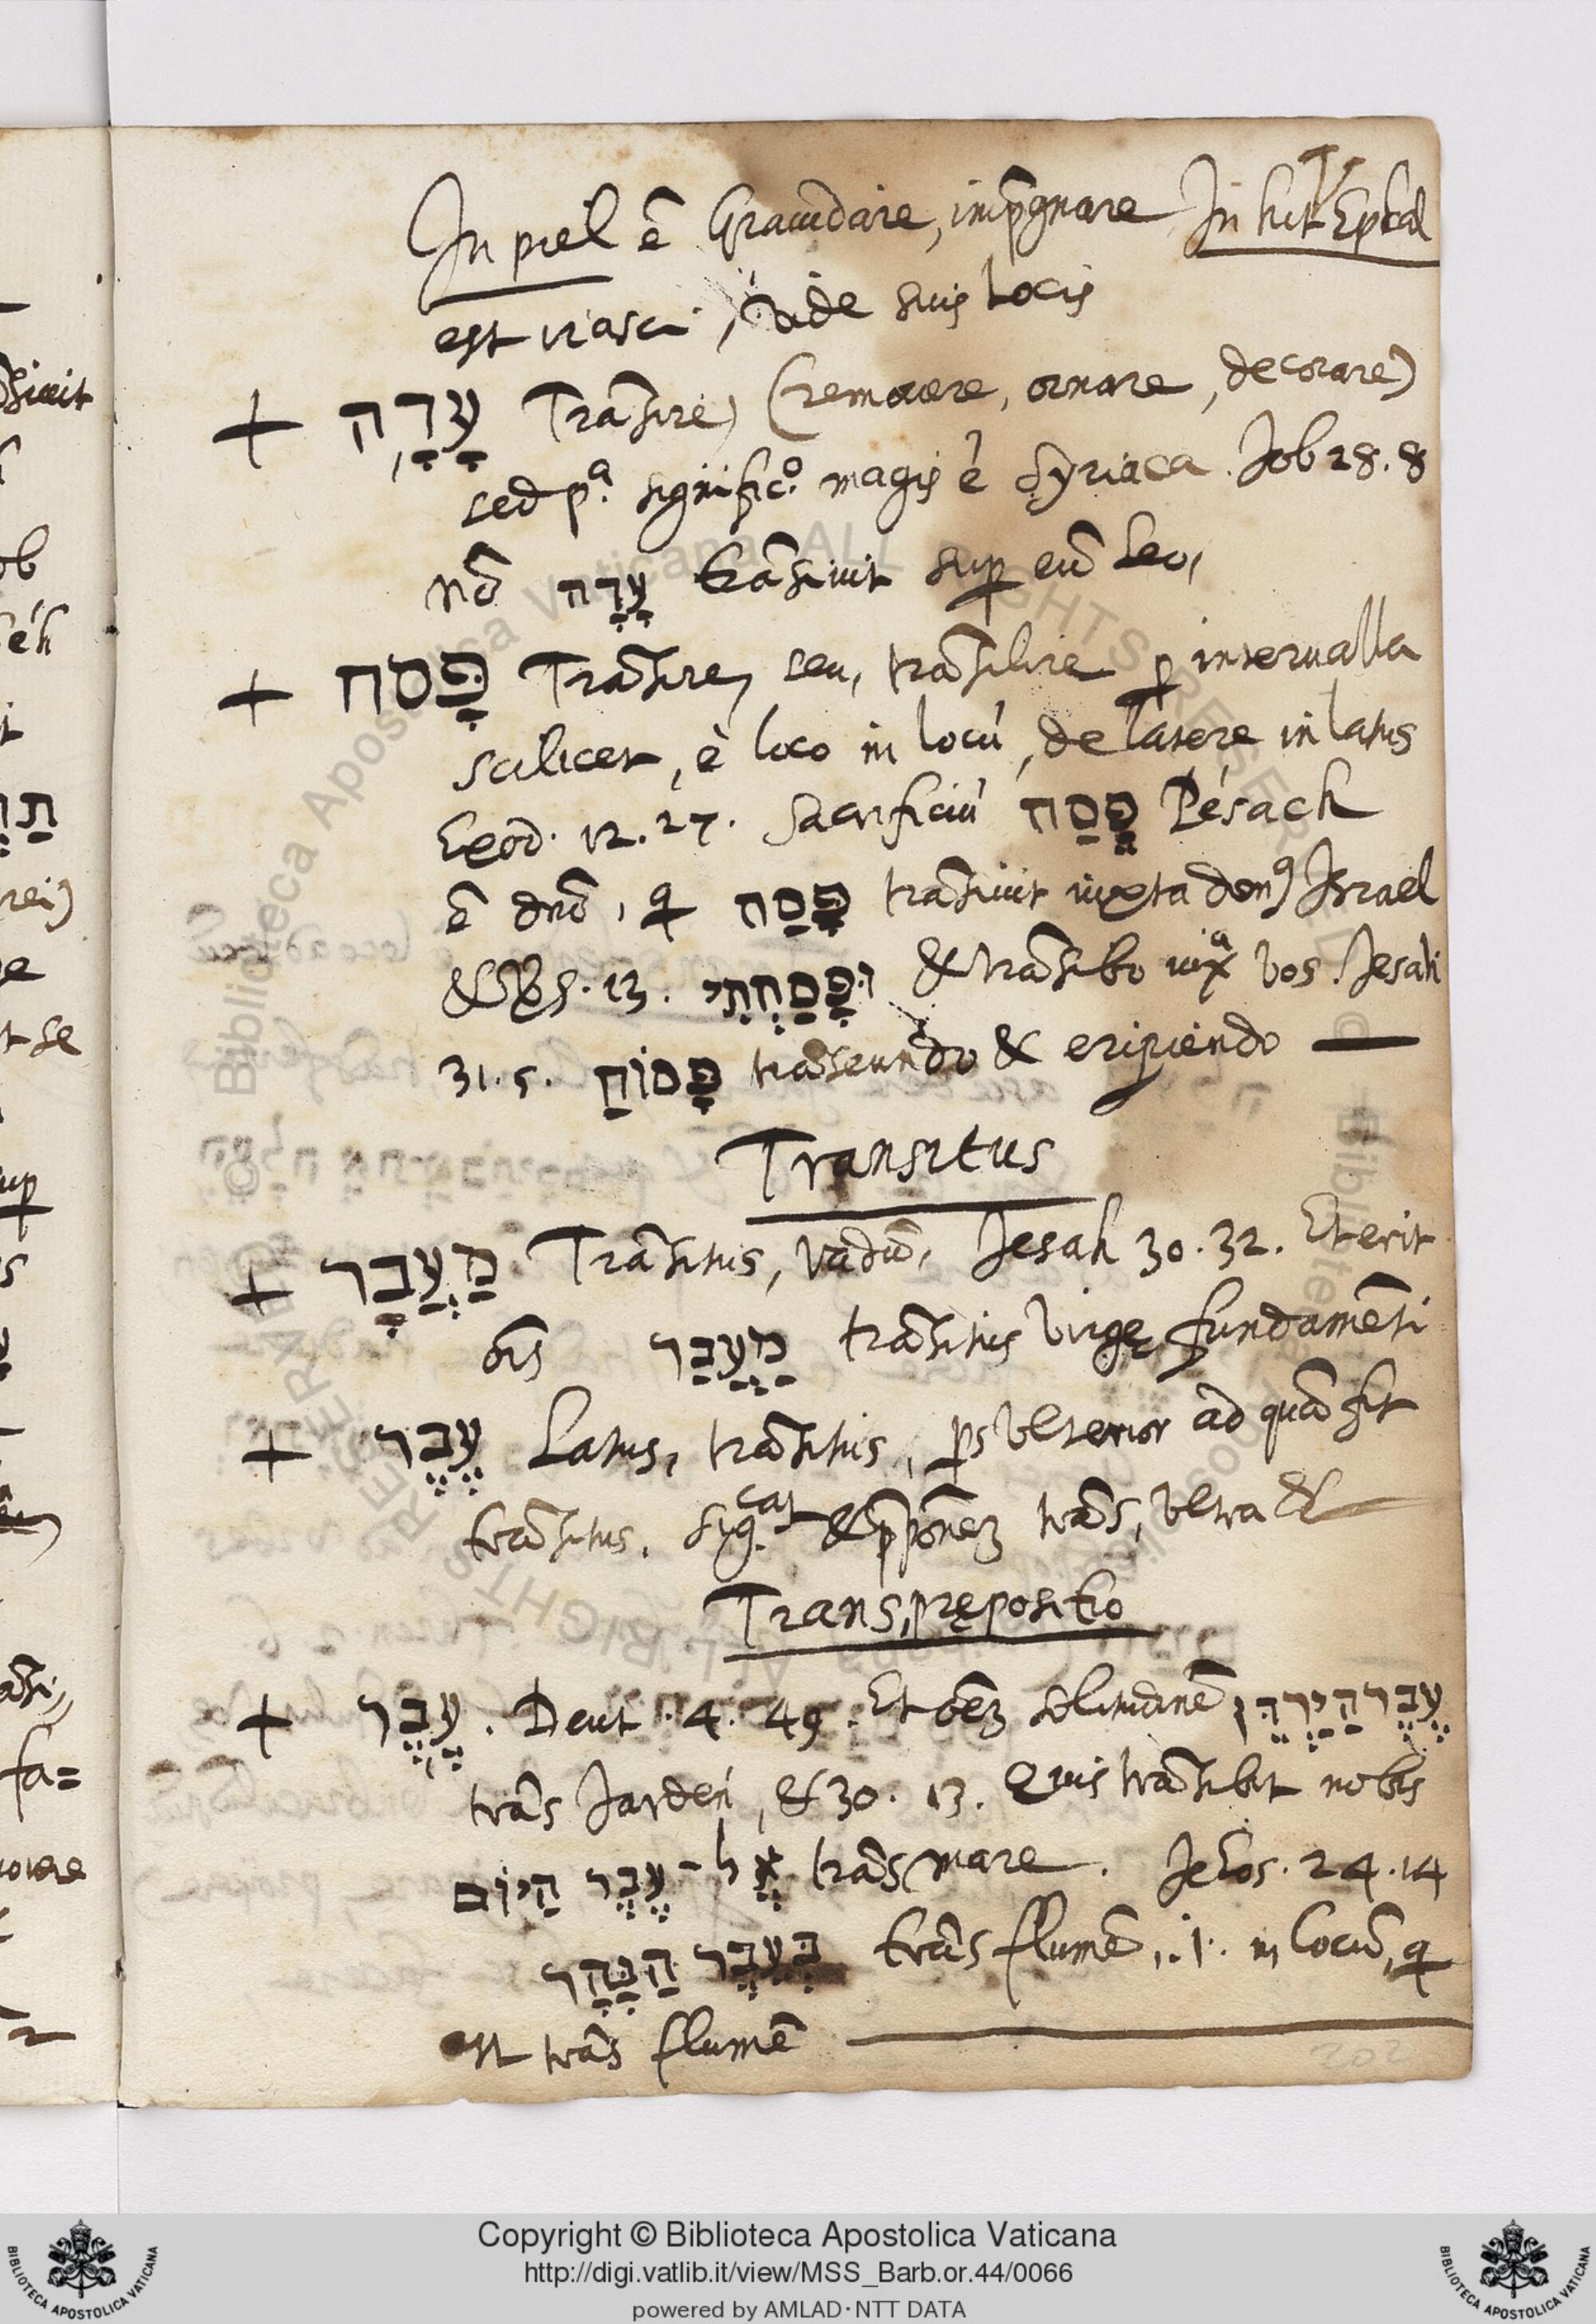 In piel ē Grauidāre, imp̄gnare In hit Epꝰal
est irasci, vide suis locis
+ עָדָה Trāsire, (remouere, ornare, decorare)
sed pᵃ. significᵒ. magis ē Syriaca. Job 28. 8
nō עָדָה trāsiuit suꝑ eū Leo,
+ פָּסח Trāsire, seu, trāsilire ꝑ interualla
scilicet, è loco in locū, de latere in latus
Exod. 12. 27. Sacrificiū פֶּסַח Pésach
ē dnō, q פָּסַח trāsiuit iuxta domꝰ Israel
& 13. וּפָּסַחְתִּי & trāsibo iuxᵃ vos. Jesah
31. 5. פָּסוֹחַ trāseundo & eripiendo —
Transitus
+ מַעֲבָר Trāsitus, vadū, Jesah 30. 32. Et erit
ōis מַעֲבַר trāsitus virgę fundamēti
+ עֵבֶר Latus, trāsitus, ꝑs vlterior ad quā fit
trāsitus. sigᶜᵃᵗ. & p̄pōnem trās, vltra &
Trans, prępositio
+ עֵבֶר. Deut. 4. 49. Et ōem solitudinē עֵבֶר הַיַּרְדֵּן
trās Jardén, & 30. 13. Quis trāsibit nobis
אֶל־עֵבֶר הַיּוֹם trās mare. Jehos. 24. 14
בְּעֵבֶר הַנָּהָר trās flumē, .i. in locū, q
est trās flumē —
202
Copyright © Biblioteca Apostolica Vaticana
http://digi.vatlib.it/view/MSS_Barb.or.44/0066
powered by AMLAD·NTT DATA